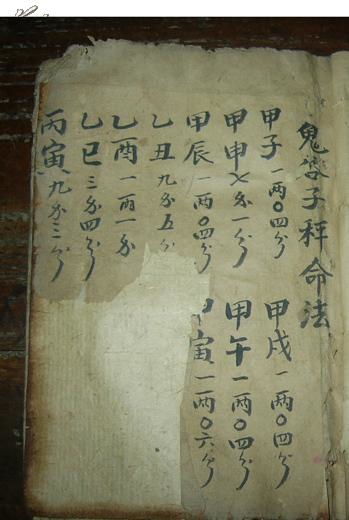 鬼谷子秤命法
甲子一两〇四分 甲戌一两〇四分
甲申七分一分 甲午一两〇四分
甲辰一两〇四分 甲寅一两〇六分
乙丑九分五分
乙酉一两一分
乙巳三分四分
丙寅九分三分